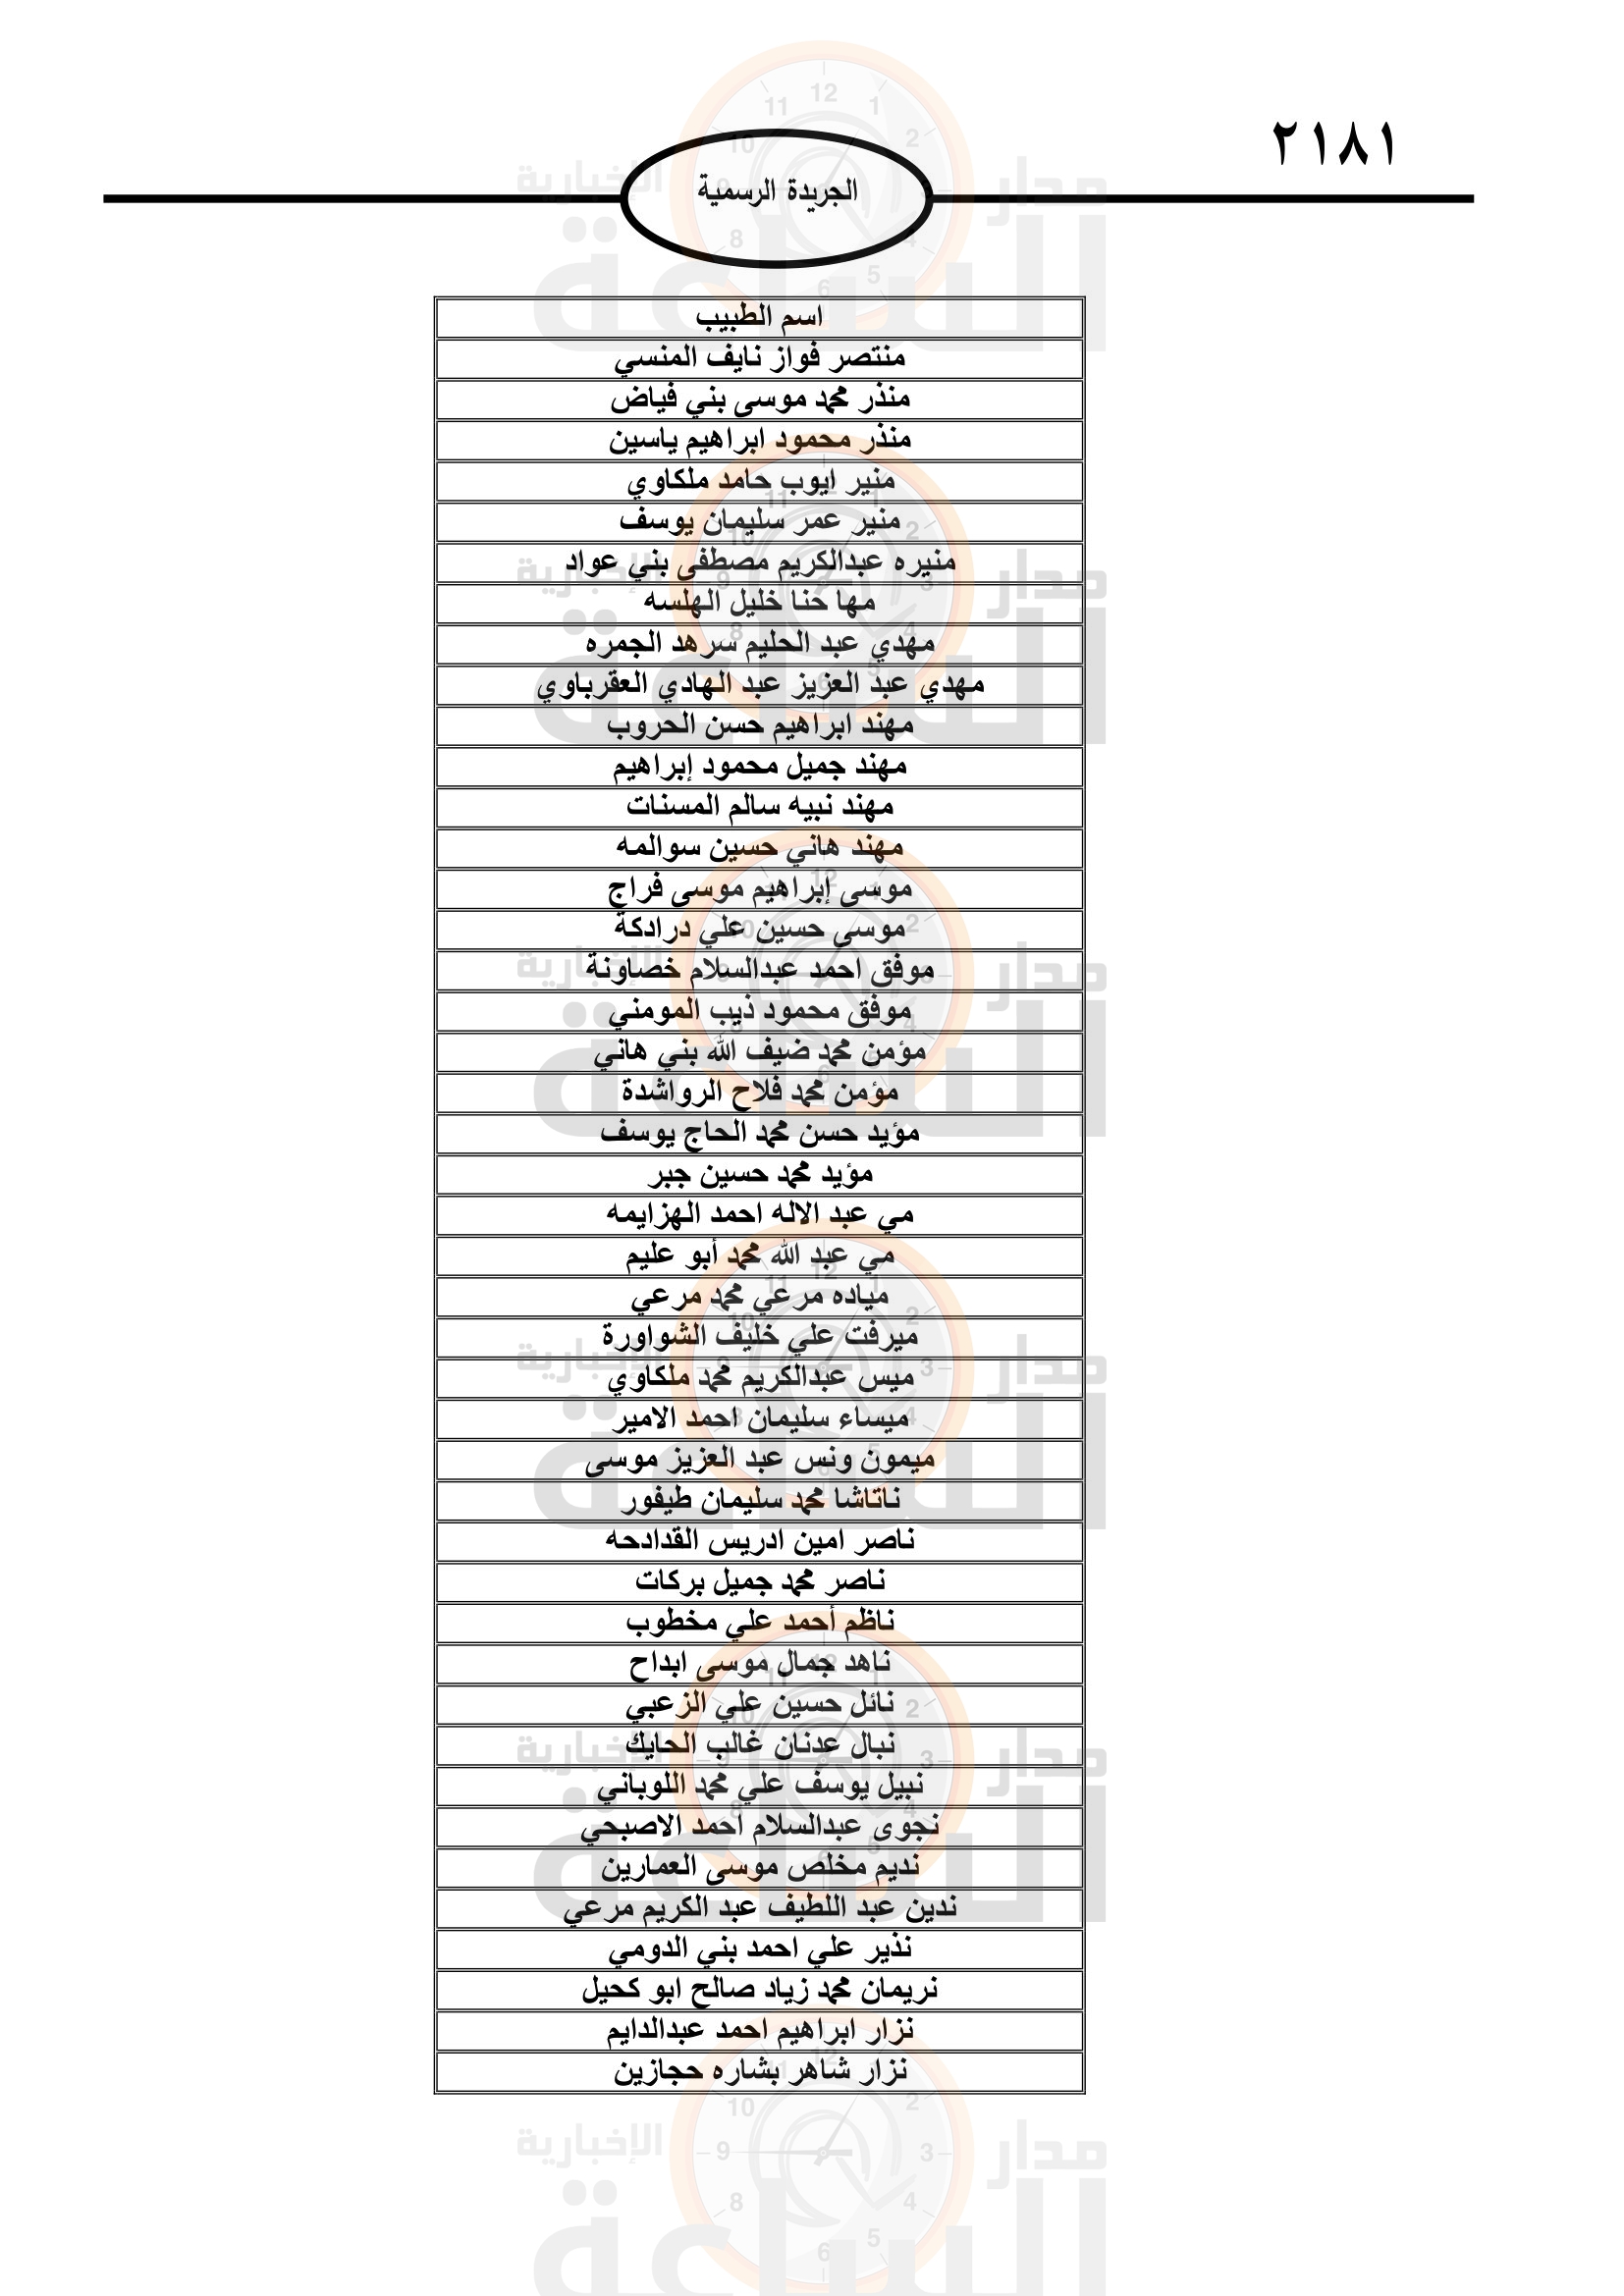 ٢١٨١
الجريدة الرسمية
اسم الطبيب
منتصر فواز نايف المنسي
منذر محمد موسى بني فياض
منذر محمود ابراهيم ياسين
منير ايوب حامد ملكاوي
منير عمر سليمان يوسف
منيره عبدالكريم مصطفى بني عواد
مها حنا خليل الهلسه
مهدي عبد الحليم سرهد الجمره
مهدي عبد العزيز عبد الهادي العقرباوي
مهند ابراهيم حسن الحروب
مهند جميل محمود إبراهيم
مهند نبيه سالم المسنات
مهند هاني حسين سوالمه
موسى إبراهيم موسى فراج
موسى حسين علي درادكة
موفق احمد عبدالسلام خصاونة
موفق محمود ذيب المومني
مؤمن محمد ضيف الله بني هاني
مؤمن محمد فلاح الرواشدة
مؤيد حسن محمد الحاج يوسف
مؤيد محمد حسين جبر
مي عبد الاله احمد الهزايمه
مي عبد الله محمد أبو عليم
مياده مرعي محمد مرعي
ميرفت علي خليف الشواورة
ميس عبدالكريم محمد ملكاوي
ميساء سليمان احمد الامير
ميمون ونس عبد العزيز موسى
ناتاشا محمد سليمان طيفور
ناصر امين ادريس القدادحه
ناصر محمد جميل بركات
ناظم أحمد علي مخطوب
ناهد جمال موسى ابداح
نائل حسين علي الزعبي
نبال عدنان غالب الحايك
نبيل يوسف علي محمد اللوباني
نجوى عبدالسلام احمد الاصبحي
نديم مخلص موسى العمارين
ندين عبد اللطيف عبد الكريم مرعي
نذير علي احمد بني الدومي
نريمان محمد زياد صالح ابو كحيل
نزار ابراهيم احمد عبدالدايم
نزار شاهر بشاره حجازين
مدار الساعة الإخبارية